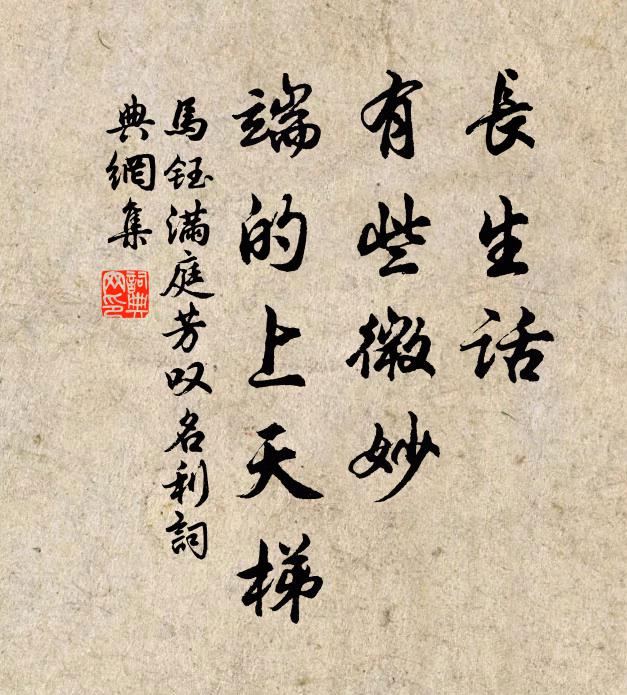 長生話
有些微妙
端的上天梯
馬鈺滿庭芳叹名利詞
典網集
詞典
网印